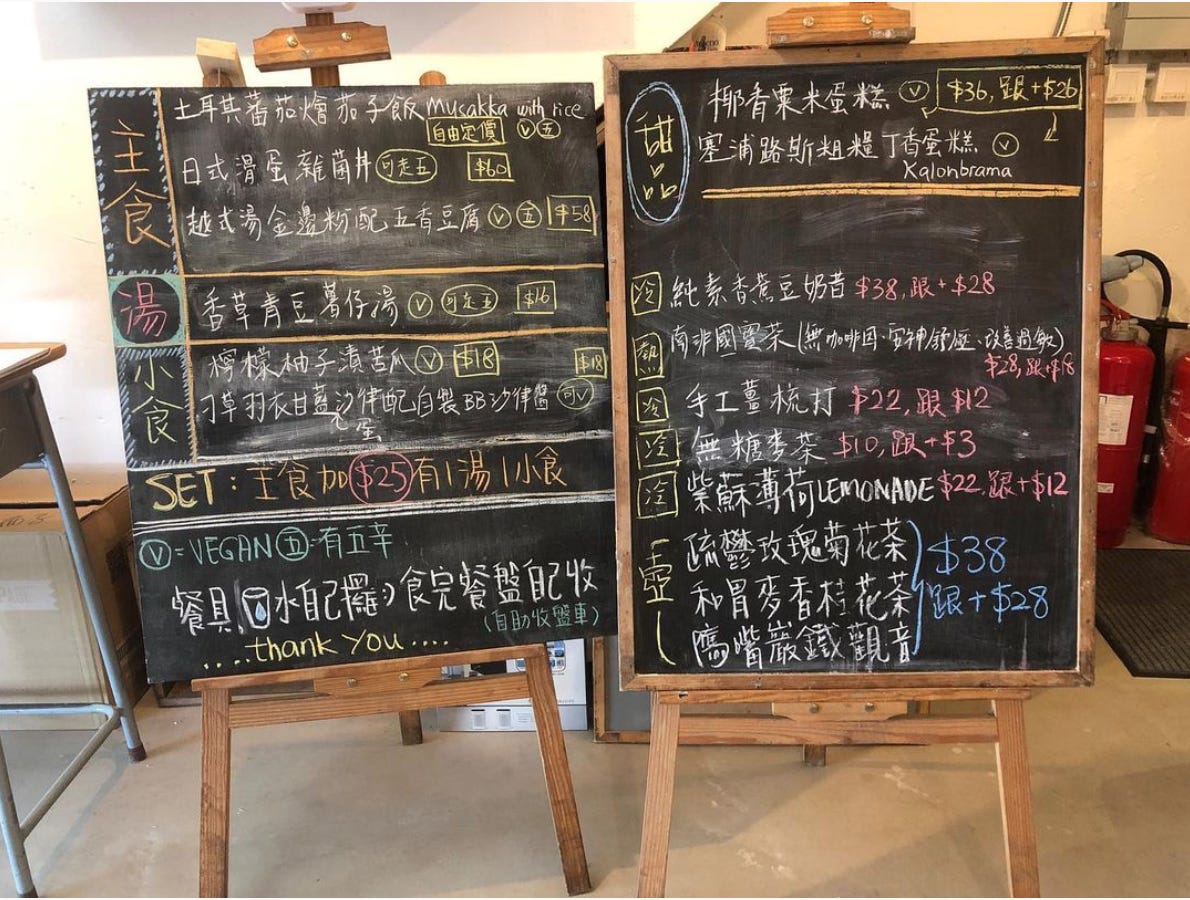 主食
土耳其蕃茄燴茄子飯 musakka with rice
自由定價 V 五
日式滑蛋雜菌丼 可走五 $60
越式湯金邊粉配五香豆腐 V 五 $58
湯
香草青豆薯仔湯 V 可走五 $16
小食
檸檬柚子漬苦瓜 V $18 $18
刁草羽衣甘藍沙律配自製BB沙律醬 可V
蛋
SET：主食加$25有1湯1小食
V=VEGAN 五=有五辛
餐具、水自己攞:)食完餐盤自己收
(自助收盤車)
....thank you....
甜品
椰香粟米蛋糕 V $36, 跟+$26
塞浦路斯粗糧丁香蛋糕 V
Kalonbrama
冷 純素香蕉豆奶昔 $38, 跟+$28
熱 南非國寶茶(無咖啡因、安神舒壓、改善過敏)
$28, 跟+$18
冷 手工薑梳打 $22, 跟$12
冷 無糖麥茶 $10, 跟+$3
冷 紫蘇薄荷LEMONADE $22, 跟+$12
壺
疏鬱玫瑰菊花茶
和胃麥香桂花茶
鷹嘴巖鐵觀音
$38
跟+$28